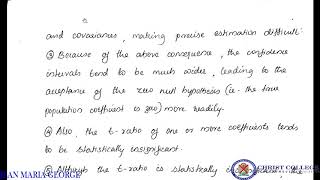 and covariances, making precise estimation difficult.
③ Because of the above consequence, the confidence
intervals tend to be much wider, leading to the
acceptance of the zero null hypothesis (i.e. the true
population coefficient is zero) more readily.
④ Also, the t-ratio of one or more coefficients tends
to be statistically insignificant.
⑤ Although the t-ratio is statistically
the
AN MARIA GEORGE
CHRIST COLLEGE